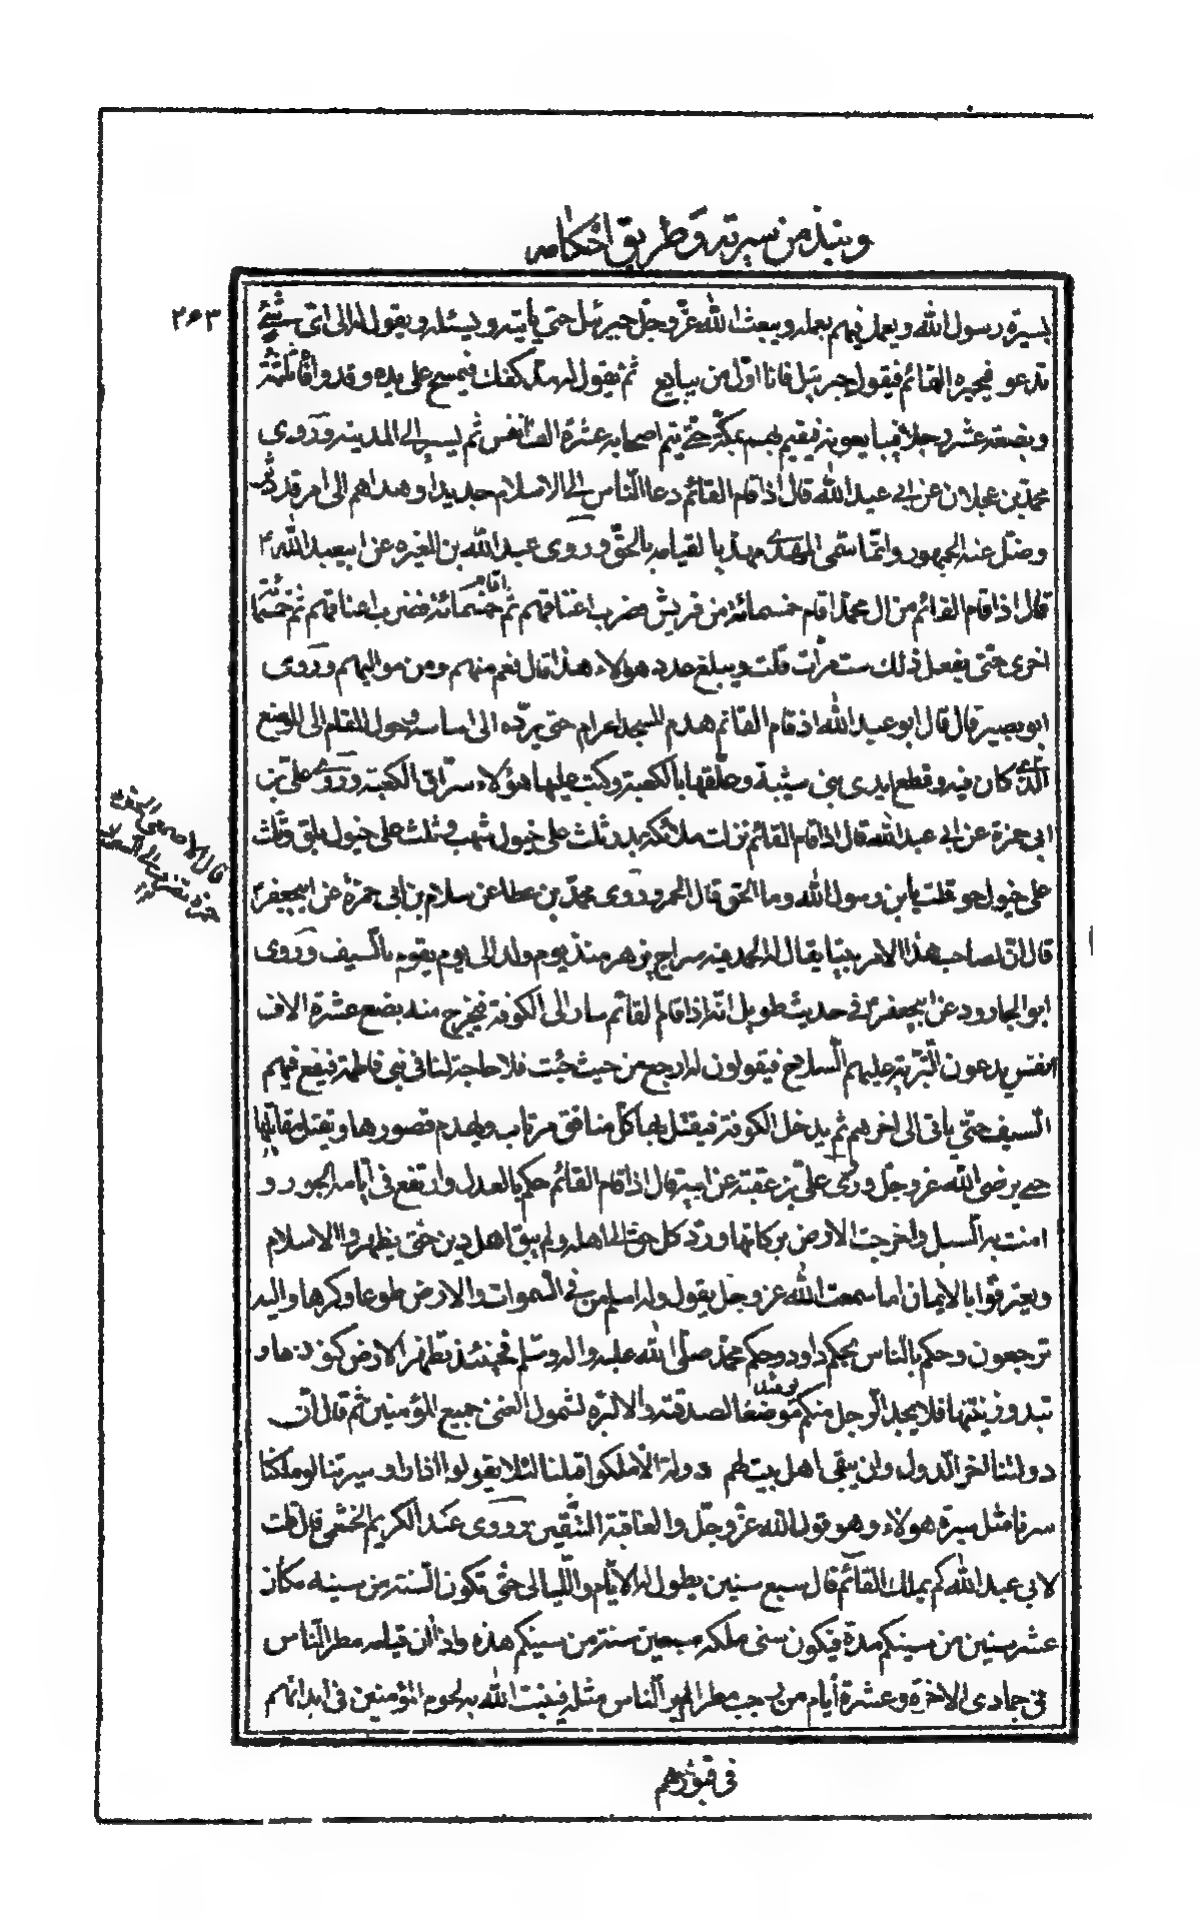 ونبذ من سيرته وطريق احكامه
۲۶۳
بسيرة رسول الله ويعمل فيهم بعمله ويبعث الله عزّ وجلّ جبرئيل حتى يأتيه ويسئله ويقول له الى اىّ شيئ
تدعو فيخبره القائم فيقول جبرئيل فانا اوّل من يبايع ثم يقول له مدّ كفك فيمسح على يده وقد وافاه ثلثمئة
وبضعة عشر رجلا فيبايعونه فيقيم بمكّة حتى يتم اصحابه عشرة الف انفس ثم يسير الى المدينة وروى
محمد بن عجلان عن ابى عبد الله قال اذا قام القائم دعا الناس الى الاسلام جديدا وهداهم الى امر قد دثر
وضلّ عنه الجمهور وانّما سمّى المهدى مهديا لقيامه بالحقّ وروى عبد الله بن المغيره عن ابيعبد الله ع
قال اذا قام القائم من ال محمّد اقام خمسمائة من قريش فضرب اعناقهم ثم اقام خمسمائة فضرب اعناقهم ثم خمسمأة
اخرى حتى يفعل ذلك ست مرّات قلت ويبلغ عدد هولاء هذا قال نعم منهم ومن مواليهم وروى
ابو بصير قال قال ابو عبد الله اذ قام القائم هدم المسجد الحرام حتى يردّه الى اساسه وحول المقام الى الموضع
الذى كان فيه وقطع ايدى بنى شيبة وعلّقها بالكعبة وكتب عليها هؤلاء سرّاق الكعبة وروى على بن
ابى حمزة عن ابى عبد الله قال اذا قام القائم نزلت ملائكة بدر ثلث على خيول شهب وثلث على خيول بلق وثلث
على خيول حو قلت يا بن رسول الله وما الحو قال الحمر وروى محمّد بن عطا عن سلام بن ابى حمزة عن ابيجعفر ع
قال انّ لصاحب هذا الامر بيتا يقال له الحمد فيه سراج يزهر منذ يوم ولد الى يوم يقوم بالسيف وروى
ابو الجارود عن ابيجعفر ع فى حديث طويل انّه اذا قام القائم سار الى الكوفة فيخرج منه بضع عشرة الاف
انفس يدعون البتريّة عليهم السلاح فيقولون له ارجع من حيث جئت فلا حاجة لنا فى بنى فاطمة فيضع فيهم
السيف حتّى يأتى الى اخرهم ثم يدخل الكوفة فيقتل بها كلّ منافق مرتاب ويهدم قصورها ويقتل مقاتليها
حتى يرضى الله عزّ وجلّ وروى على بن عقبة عن ابيه قال اذا قام القائم حكم بالعدل وارتفع فى ايّامه الجور و
امنت به السبل واخرجت الارض بركاتها وردّ كل حق الى اهله ولم يبق اهل دين حتى يظهروا الاسلام
ويعترفوا بالايمان اما سمعت الله عز وجل يقول وله اسلم من فى السموات والارض طوعا وكرها واليه
ترجعون وحكم بالناس بحكم داود وحكم محمّد صلّى الله عليه واله وسلم فحينئذ تظهر الارض كنوزها و
تبدو زينتها فلا يجد الرجل منكم يومئذ موضعا لصدقته ولا لبرّه لشمول الغنى جميع المؤمنين ثم قال انّ
دولتنا اخر الدول ولن يبقى اهل بيت لهم دولة الّا ملكوا قبلنا لئلا يقولوا اذا راو سيرتنا لو ملكنا
سرنا مثل سيرة هولاء وهو قول الله عزّ وجلّ والعاقبة للمتّقين وروى عبد الكريم الخثعمى قال قلت
لابى عبد الله كم يملك القائم قال سبع سنين يطول له الايّام والليالى حتى تكون السنة من سنيه مكان
عشر سنين من سنيكم مدّة فيكون سنى ملكه سبعين سنة من سنيكم هذه واذا ان قيامه مطر الناس
فى جمادى الاخرة وعشرة أيام من رجب مطرا لم ير الناس مثله فينبت الله به لحوم المؤمنين فى ابدانهم
فى قبورهم